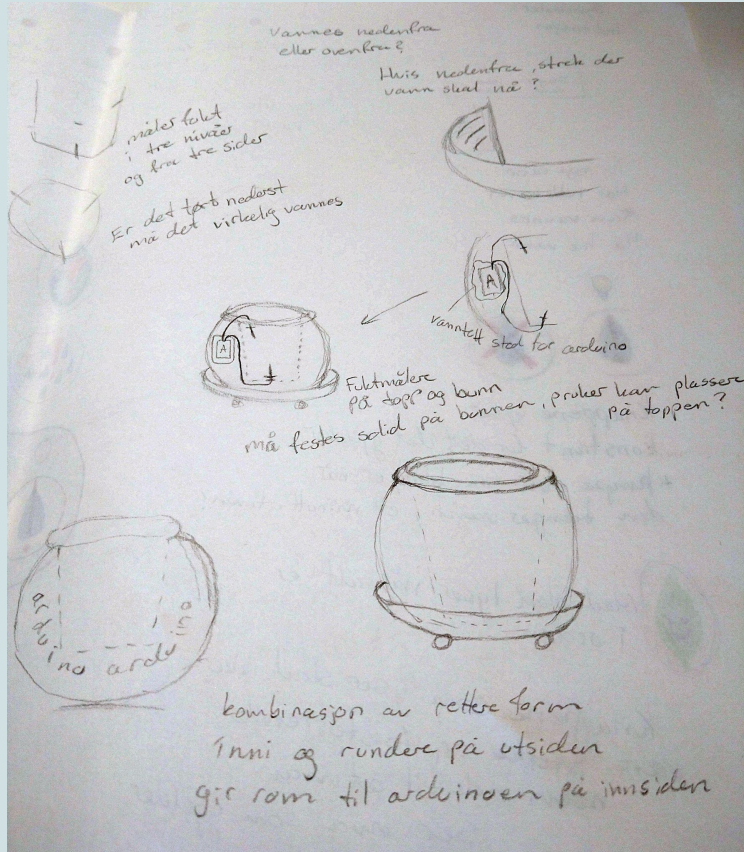 vannes nedenfra
eller ovenfra?
Hvis nedenfra, strek der
vann skal nå?
måler fukt
i tre nivåer
og fra tre sider
Er det tørt nederst
må det virkelig vannes
A
vanntett sted for arduino
A
Fuktmålere
på topp og bunn
må festes solid på bunnen, bruker kan plassere
på toppen?
arduino arduino
kombinasjon av rettere form
inni og rundere på utsiden
gir rom til arduinoen på innsiden